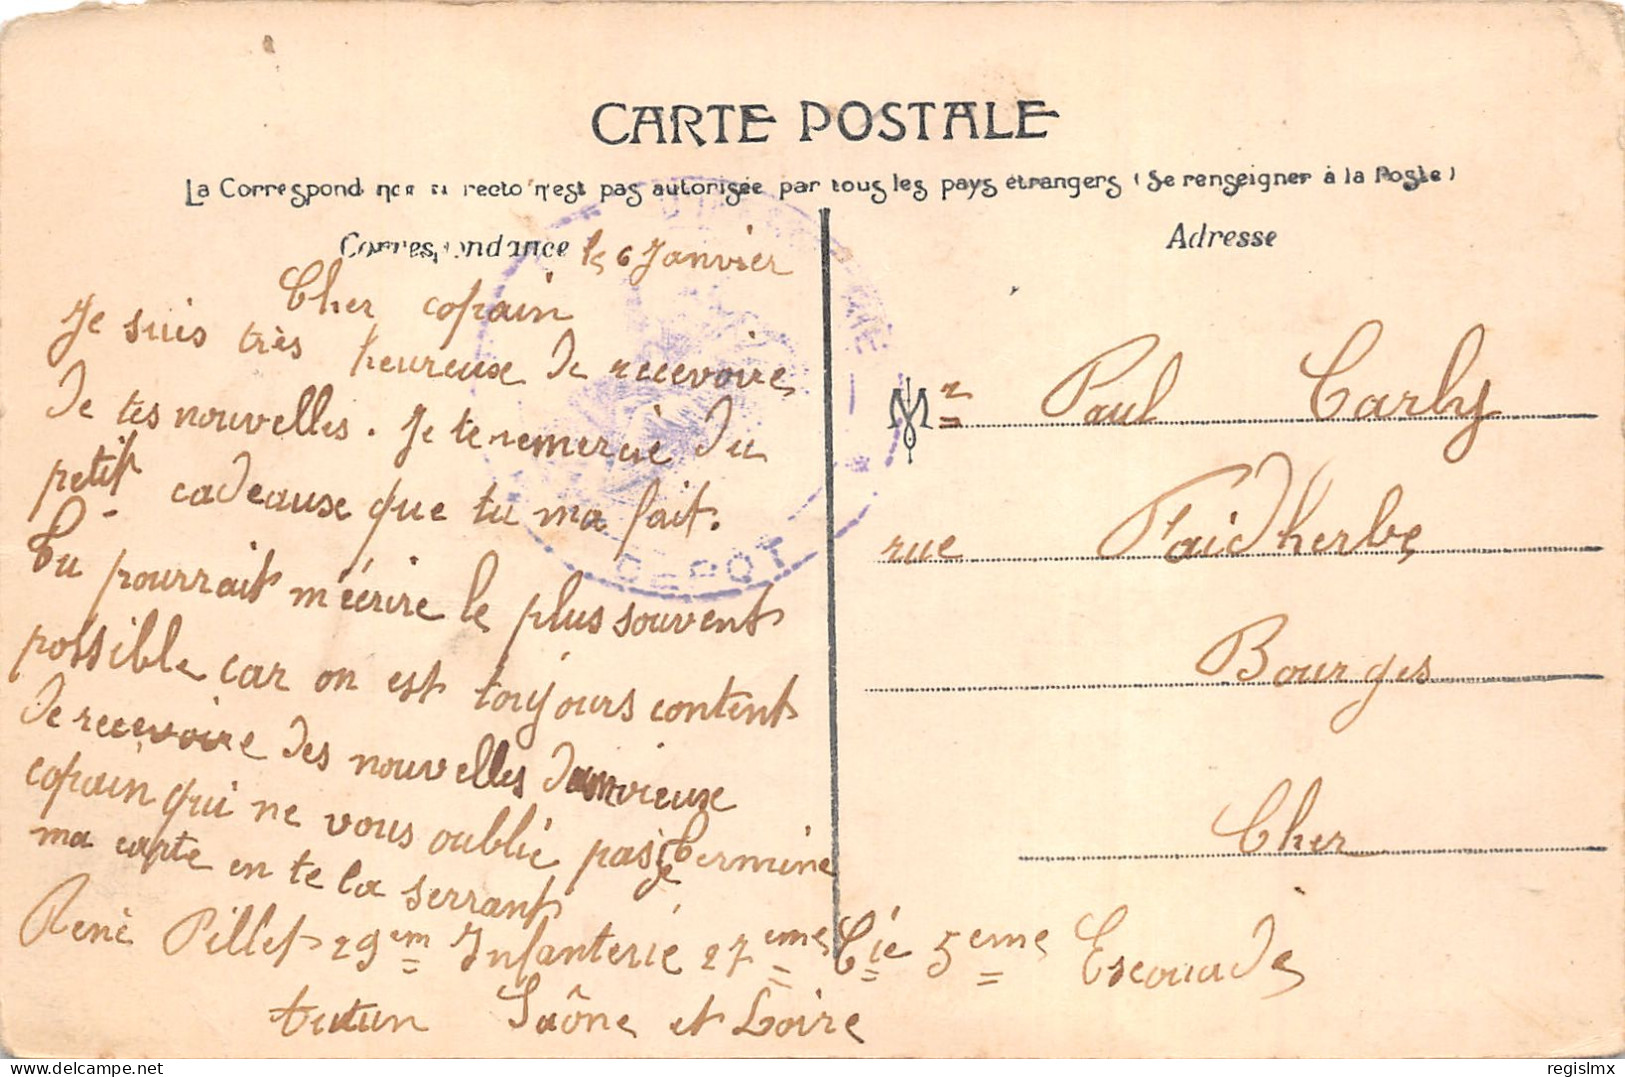 CARTE POSTALE
La Correspondance au recto n'est pas autorisée par tous les pays étrangers (Se renseigner à la Poste)
Correspondance le 6 Janvier
Cher copain
Je suis très heureuse de recevoire
de tes nouvelles. Je te remercie du
petit cadeause que tu ma fait.
Tu pourrait m'écrire le plus souvent
possible car on est toujours content
de recevoire des nouvelles d'un vieuse
copain qui ne vous oublie pas Je termine
ma carte en te la serrant
René Pillet 29em Infanterie 27eme Cie 5eme Escouade
Autun Saône et Loire
DEPOT
Adresse
Mr Paul Carly
rue Faidherbe
Bourges
Cher
regislmx